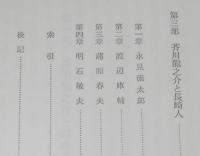 第三部 芥川龍之介と長崎人
第一章 永見徳太郎
第二章 渡辺庫輔
第三章 蒲原春夫
第四章 明石敏夫
索引
後記